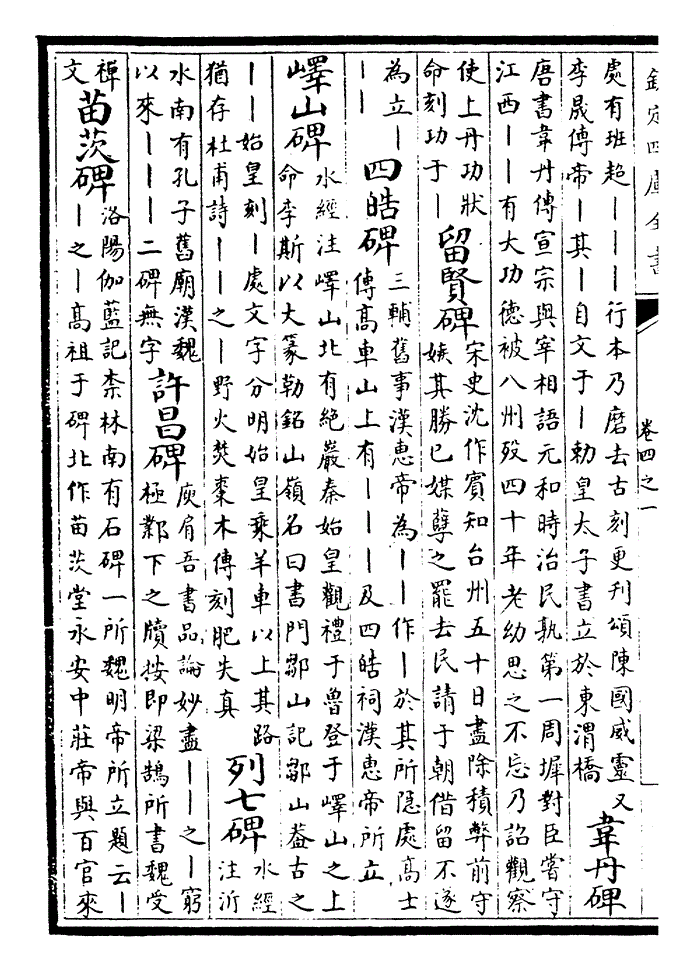 欽定四庫全書 卷四之一
處有班超｜｜｜行本乃磨去古刻更刊頌陳國威靈又
李晟傳帝｜其｜自文于｜勅皇太子書立於東渭橋
韋丹碑
唐書韋丹傳宣宗與宰相語元和時治民孰第一周墀對臣嘗守
江西｜｜有大功德被八州歿四十年老幼思之不忘乃詔觀察
使上丹功狀
命刻功于｜
留賢碑
宋史沈作賓知台州五十日盡除積弊前守
嫉其勝已媒孽之罷去民請于朝借留不遂
為立｜
｜｜
四皓碑
三輔舊事漢惠帝為｜｜作｜於其所隱處高士
傳高車山上有｜｜｜及四皓祠漢惠帝所立
嶧山碑
水經注嶧山北有絕巖秦始皇觀禮于魯登于嶧山之上
命李斯以大篆勒銘山嶺名曰書門鄒山記鄒山葢古之
｜｜始皇刻｜處文字分明始皇乘羊車以上其路
猶存杜甫詩｜｜之｜野火焚棗木傳刻肥失真
列七碑
水經
注沂
水南有孔子舊廟漢魏
以來｜｜｜二碑無字
許昌碑
庾肩吾書品論妙盡｜｜之｜窮
極鄴下之牘按即梁鵠所書魏受
禪
文
苗茨碑
洛陽伽藍記柰林南有石碑一所魏明帝所立題云｜
｜之｜高祖于碑北作苗茨堂永安中莊帝與百官來